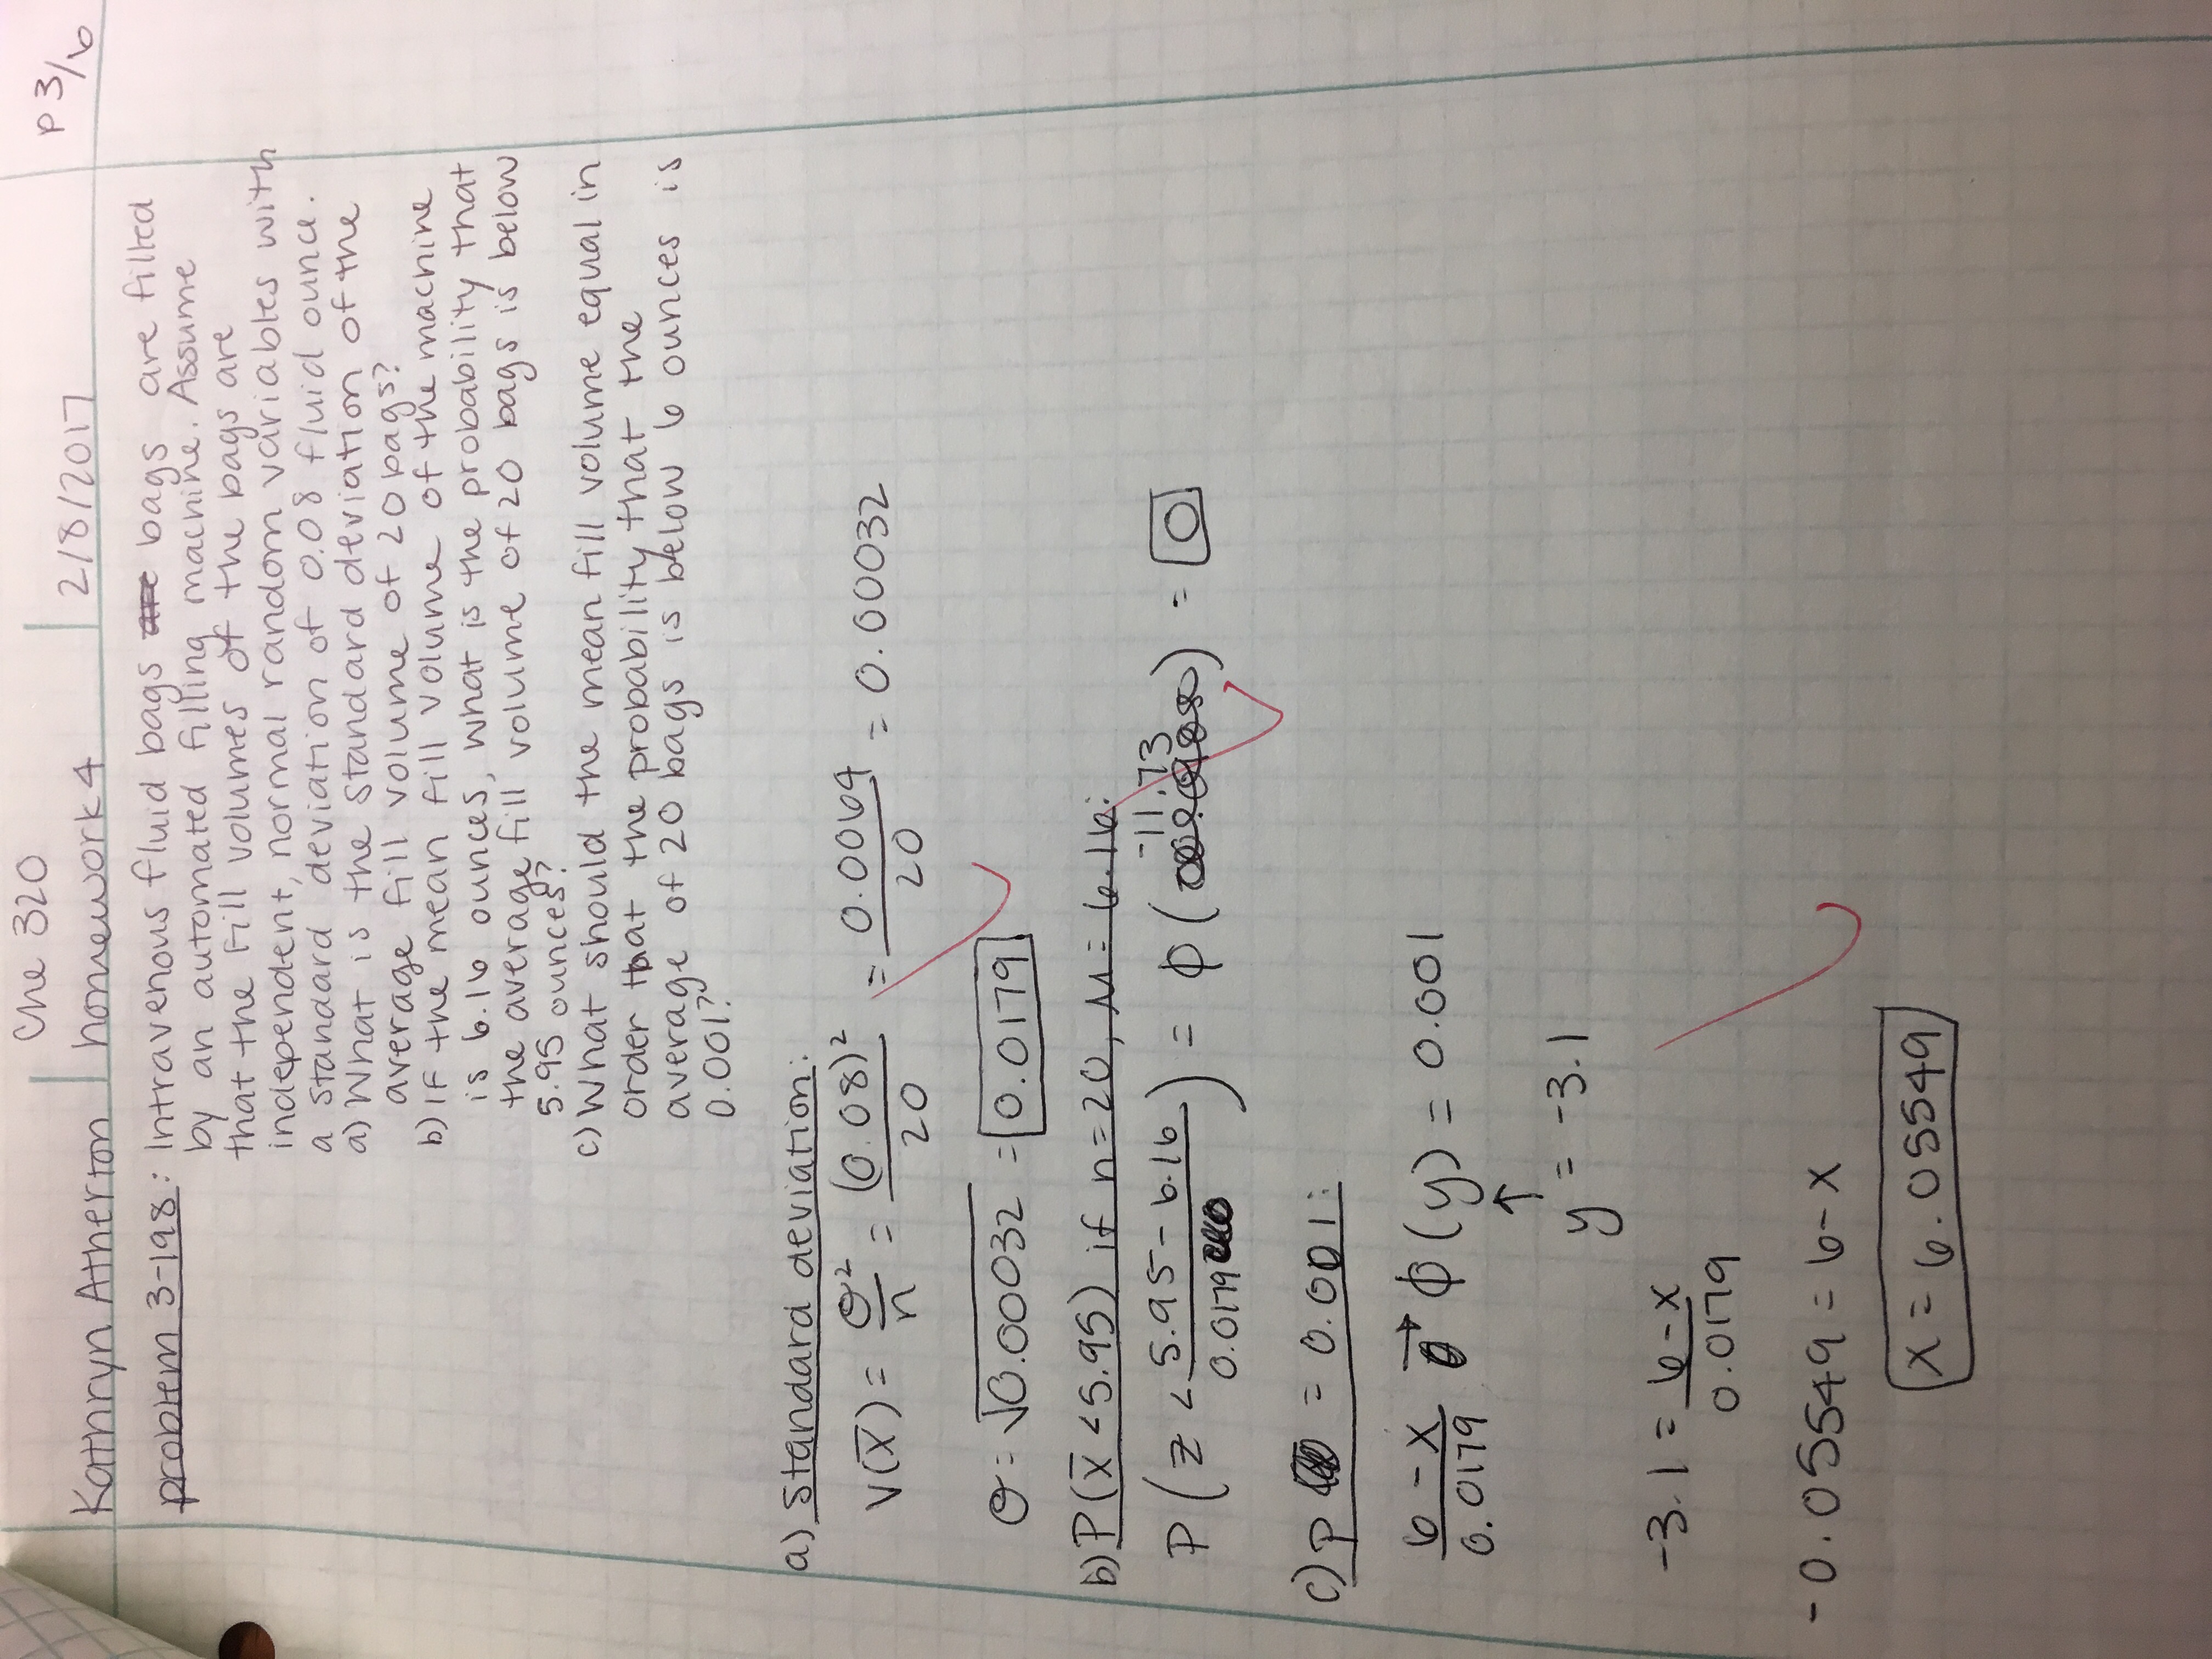 Che 320
Kathryn Atherton homework 4 2/8/2017 P 3/6
problem 3-198: Intravenous fluid bags are bags are filled
by an automated filling machine. Assume
that the fill volumes of the bags are
independent, normal random variables with
a standard deviation of 0.08 fluid ounce.
a) What is the standard deviation of the
average fill volume of 20 bags?
b) If the mean fill volume of the machine
is 6.16 ounces, what is the probability that
the average fill volume of 20 bags is below
5.95 ounces?
c) What should the mean fill volume equal in
order that the probability that the
average of 20 bags is below 6 ounces is
0.001?
a) Standard deviation:
V(x̄) = σ²/n = (0.08)²/20 = 0.0064/20 = 0.00032
σ = √0.00032 = 0.0179
b) P(x̄ < 5.95) if n=20, μ = 6.16:
P(z < (5.95 - 6.16)/0.0179) = φ(-11.73) = 0
c) P = 0.001:
(6 - x)/0.0179 → φ(y) = 0.001
↑
y = -3.1
-3.1 = (6 - x)/0.0179
-0.05549 = 6 - x
x = 6.05549